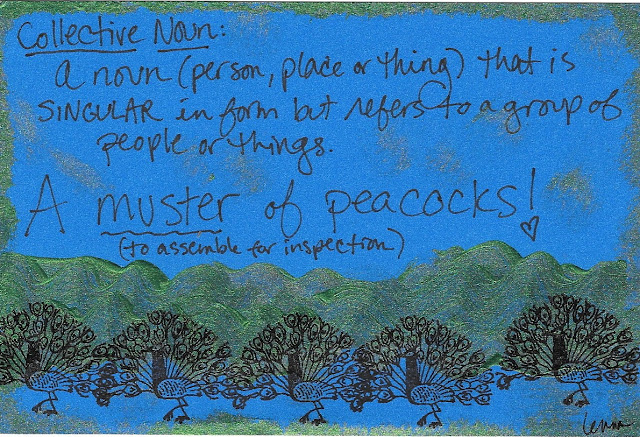 Collective Noun:
a noun (person, place or thing) that is
SINGULAR in form but refers to a group of
people or things.
A muster of peacocks!
(to assemble for inspection)